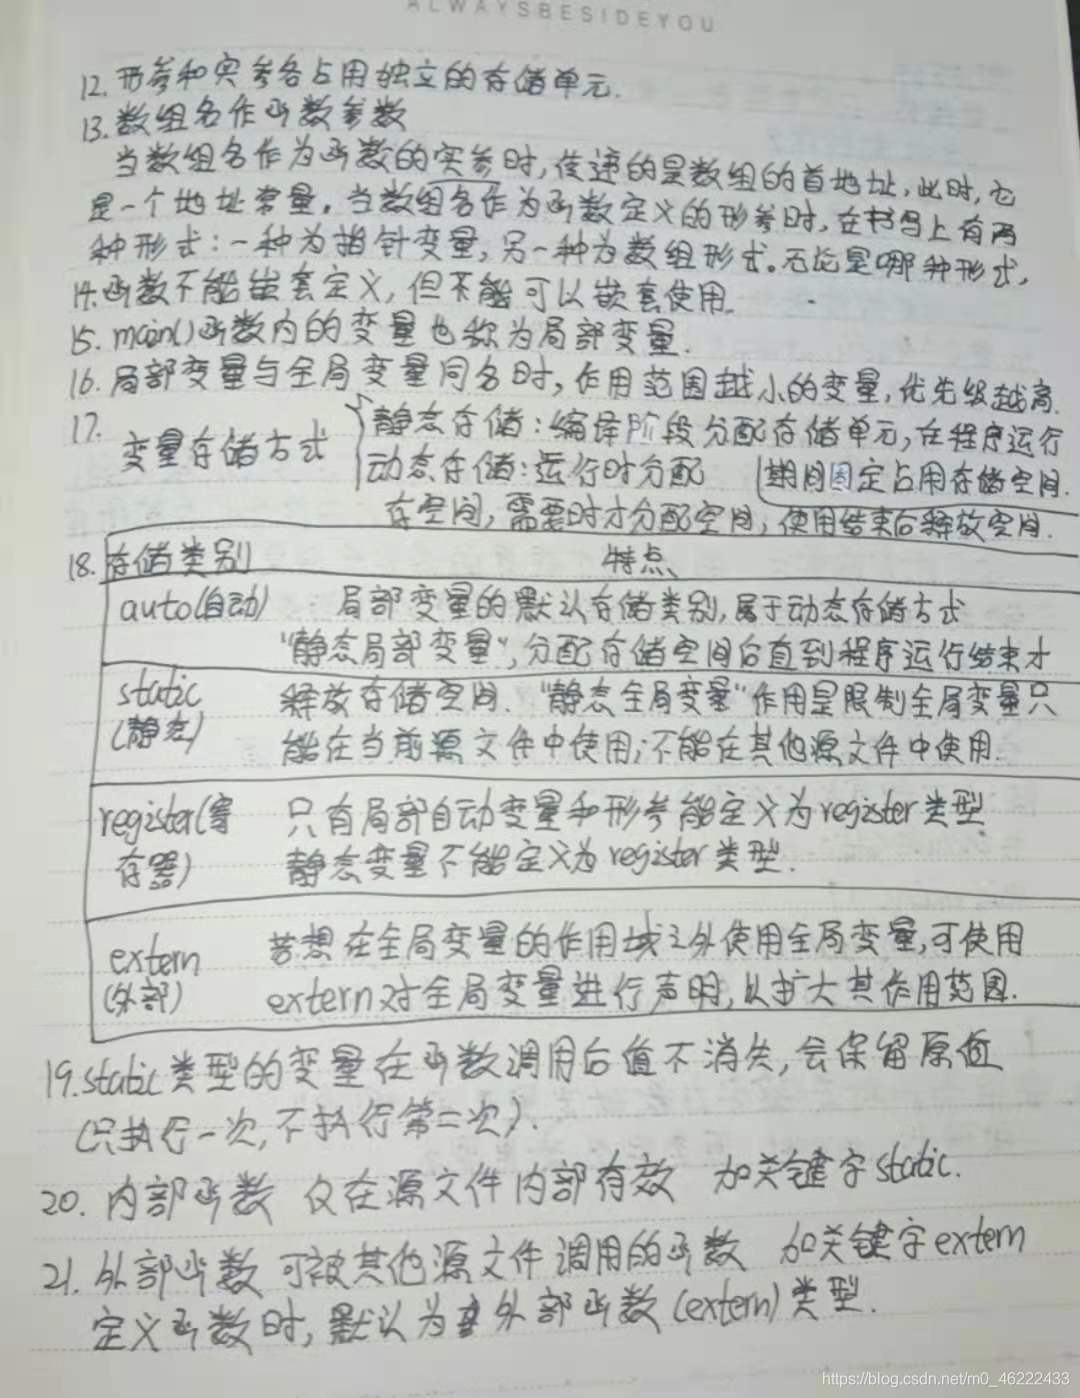 ALWAYSBESIDEYOU
12. 形参和实参各占用独立的存储单元.
13. 数组名作函数参数
当数组名作为函数的实参时,传递的是数组的首地址,此时,它
是一个地址常量。当数组名作为函数定义的形参时,在书写上有两
种形式:一种为指针变量,另一种为数组形式。无论是哪种形式,
14. 函数不能嵌套定义,但不能可以嵌套使用.
15. main()函数内的变量也称为局部变量.
16. 局部变量与全局变量同名时,作用范围越小的变量,优先级越高.
17. 变量存储方式
静态存储:编译阶段分配存储单元,在程序运行
期间固定占用存储空间.
动态存储:运行时分配
存空间,需要时才分配空间,使用结束后释放空间.
18. 存储类别 特点
auto(自动) : 局部变量的默认存储类别,属于动态存储方式
"静态局部变量",分配存储空间后直到程序运行结束才
static 释放存储空间. "静态全局变量"作用是限制全局变量只
(静态) 能在当前源文件中使用;不能在其他源文件中使用.
register(寄 只有局部自动变量和形参能定义为register类型
存器) 静态变量不能定义为register类型.
extern 若想在全局变量的作用域之外使用全局变量,可使用
(外部) extern对全局变量进行声明,以扩大其作用范围.
19. static类型的变量在函数调用后值不消失,会保留原值
(只执行一次,不执行第二次).
20. 内部函数 仅在源文件内部有效 加关键字static.
21. 外部函数 可被其他源文件调用的函数 加关键字extern
定义函数时,默认为外部函数(extern)类型.
https://blog.csdn.net/m0_46222433